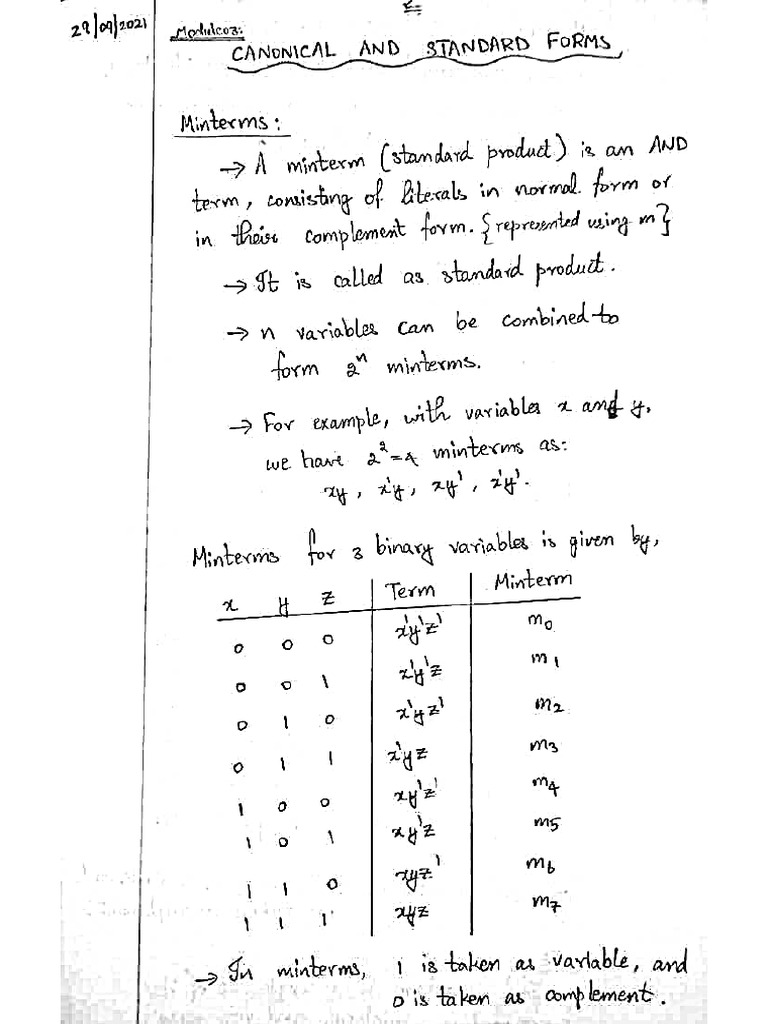 29/09/2021
Module03:
CANONICAL AND STANDARD FORMS
Minterms:
→ A minterm (standard product) is an AND
term, consisting of literals in normal form or
in their complement form. {represented using m}
→ It is called as standard product.
→ n variables can be combined to
form 2ⁿ minterms.
→ For example, with variables x and y,
we have 2²=4 minterms as:
xy, x'y, xy', x'y'.
Minterms for 3 binary variables is given by,
x y z | Term | Minterm
0 0 0 | x'y'z' | m₀
0 0 1 | x'y'z | m₁
0 1 0 | x'yz' | m₂
0 1 1 | x'yz | m₃
1 0 0 | xy'z' | m₄
1 0 1 | xy'z | m₅
1 1 0 | xyz' | m₆
1 1 1 | xyz | m₇
→ In minterms, 1 is taken as variable, and
0 is taken as complement.